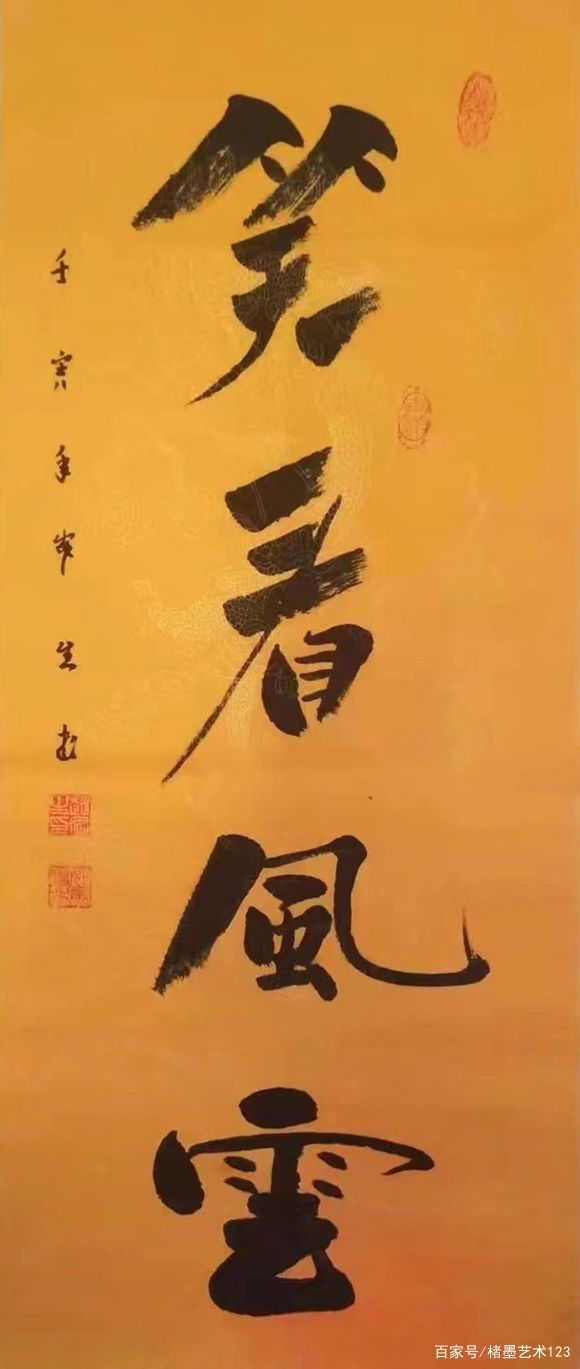 笑看風雲
壬寅年 生
百家号/楮墨艺术123